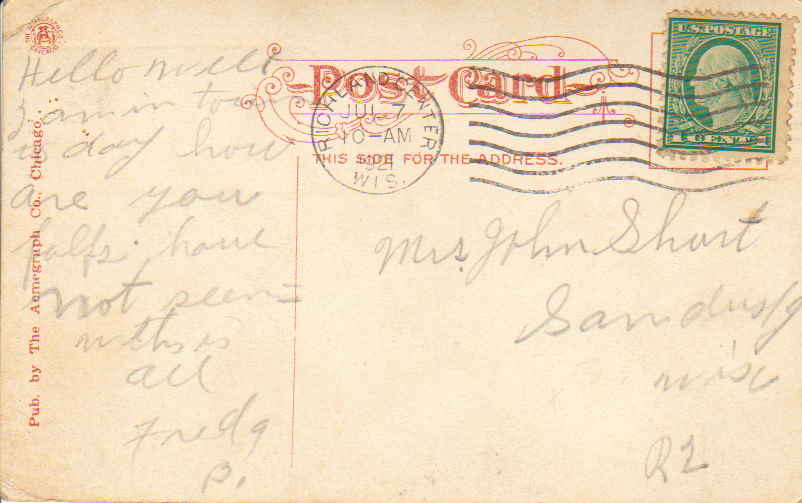 THE ACMEGRAPH CO. CHICAGO
Post Card
THIS SIDE FOR THE ADDRESS.
RICHLAND CENTER
JUL 7
10-AM
1921
WIS.
U.S. POSTAGE
1 CENT 1
Pub. by The Acmegraph Co., Chicago.
Hello
I am in town
to day how
are you
folks have
not seen
all
Fred
P.
Mrs. John Short
Sandusky
Wisc
R2